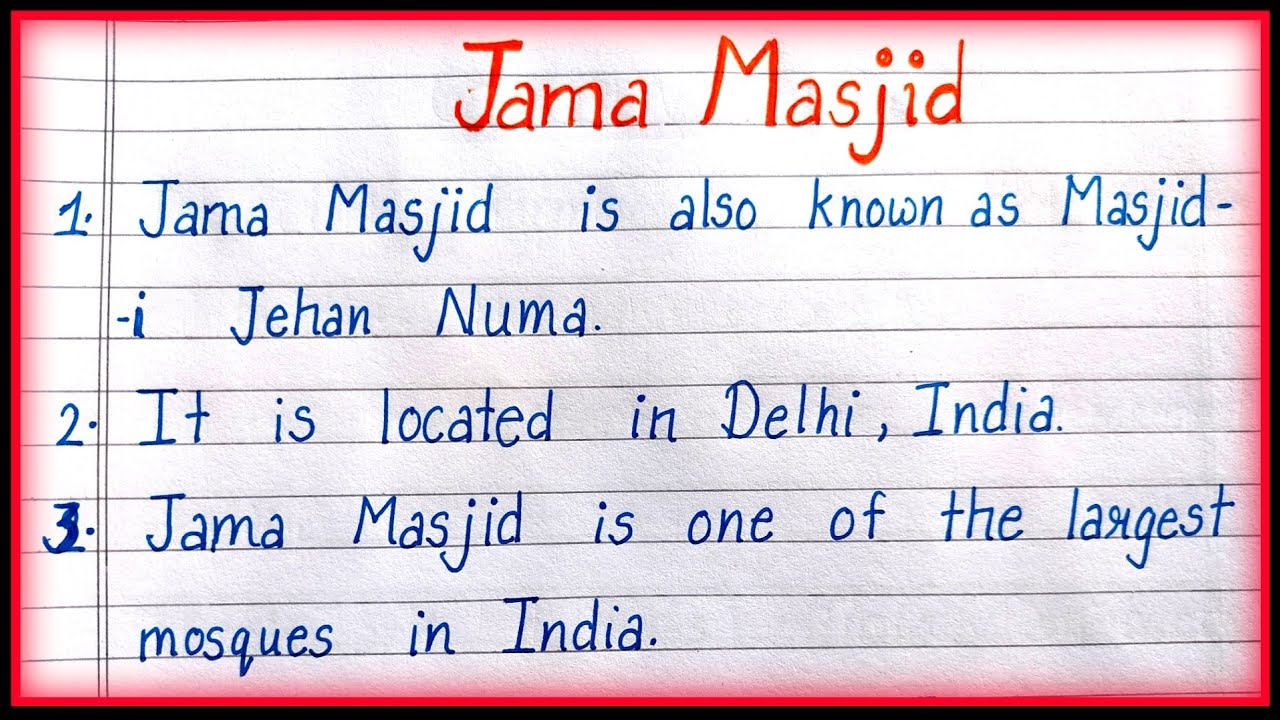 Jama Masjid
1. Jama Masjid is also known as Masjid-
-i Jehan Numa.
2. It is located in Delhi, India.
3. Jama Masjid is one of the largest
mosques in India.